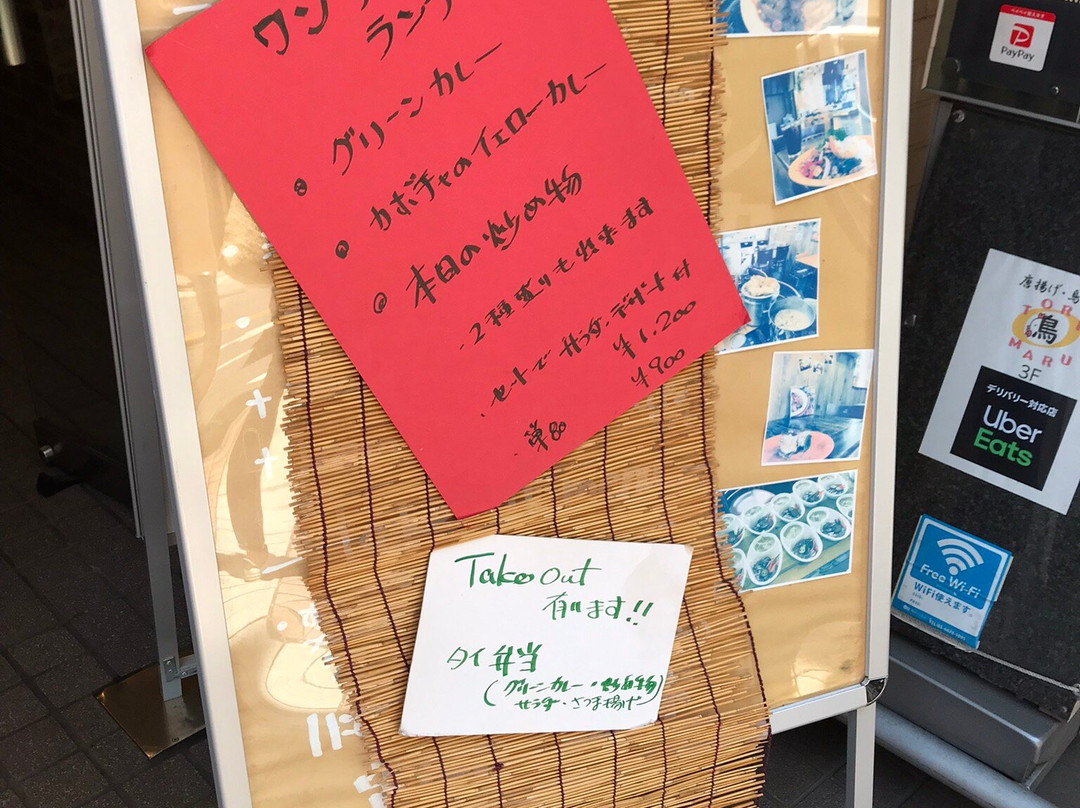 ワン
ラン
グリーンカレー
カボチャのイエローカレー
本日の炒め物
2種盛りも出来ます
セットで サラダ・デザート付
¥1.200
単品
¥900
Take Out
有ります!!
タイ弁当
(グリーンカレー・炒め物)
サラダ・さつま揚げ
ペイペイ使えます
PayPay
唐揚げ・鳥
TORI
鳥
MARU
3F
デリバリー対応店
Uber
Eats
Free Wi-Fi
WiFi使えます。